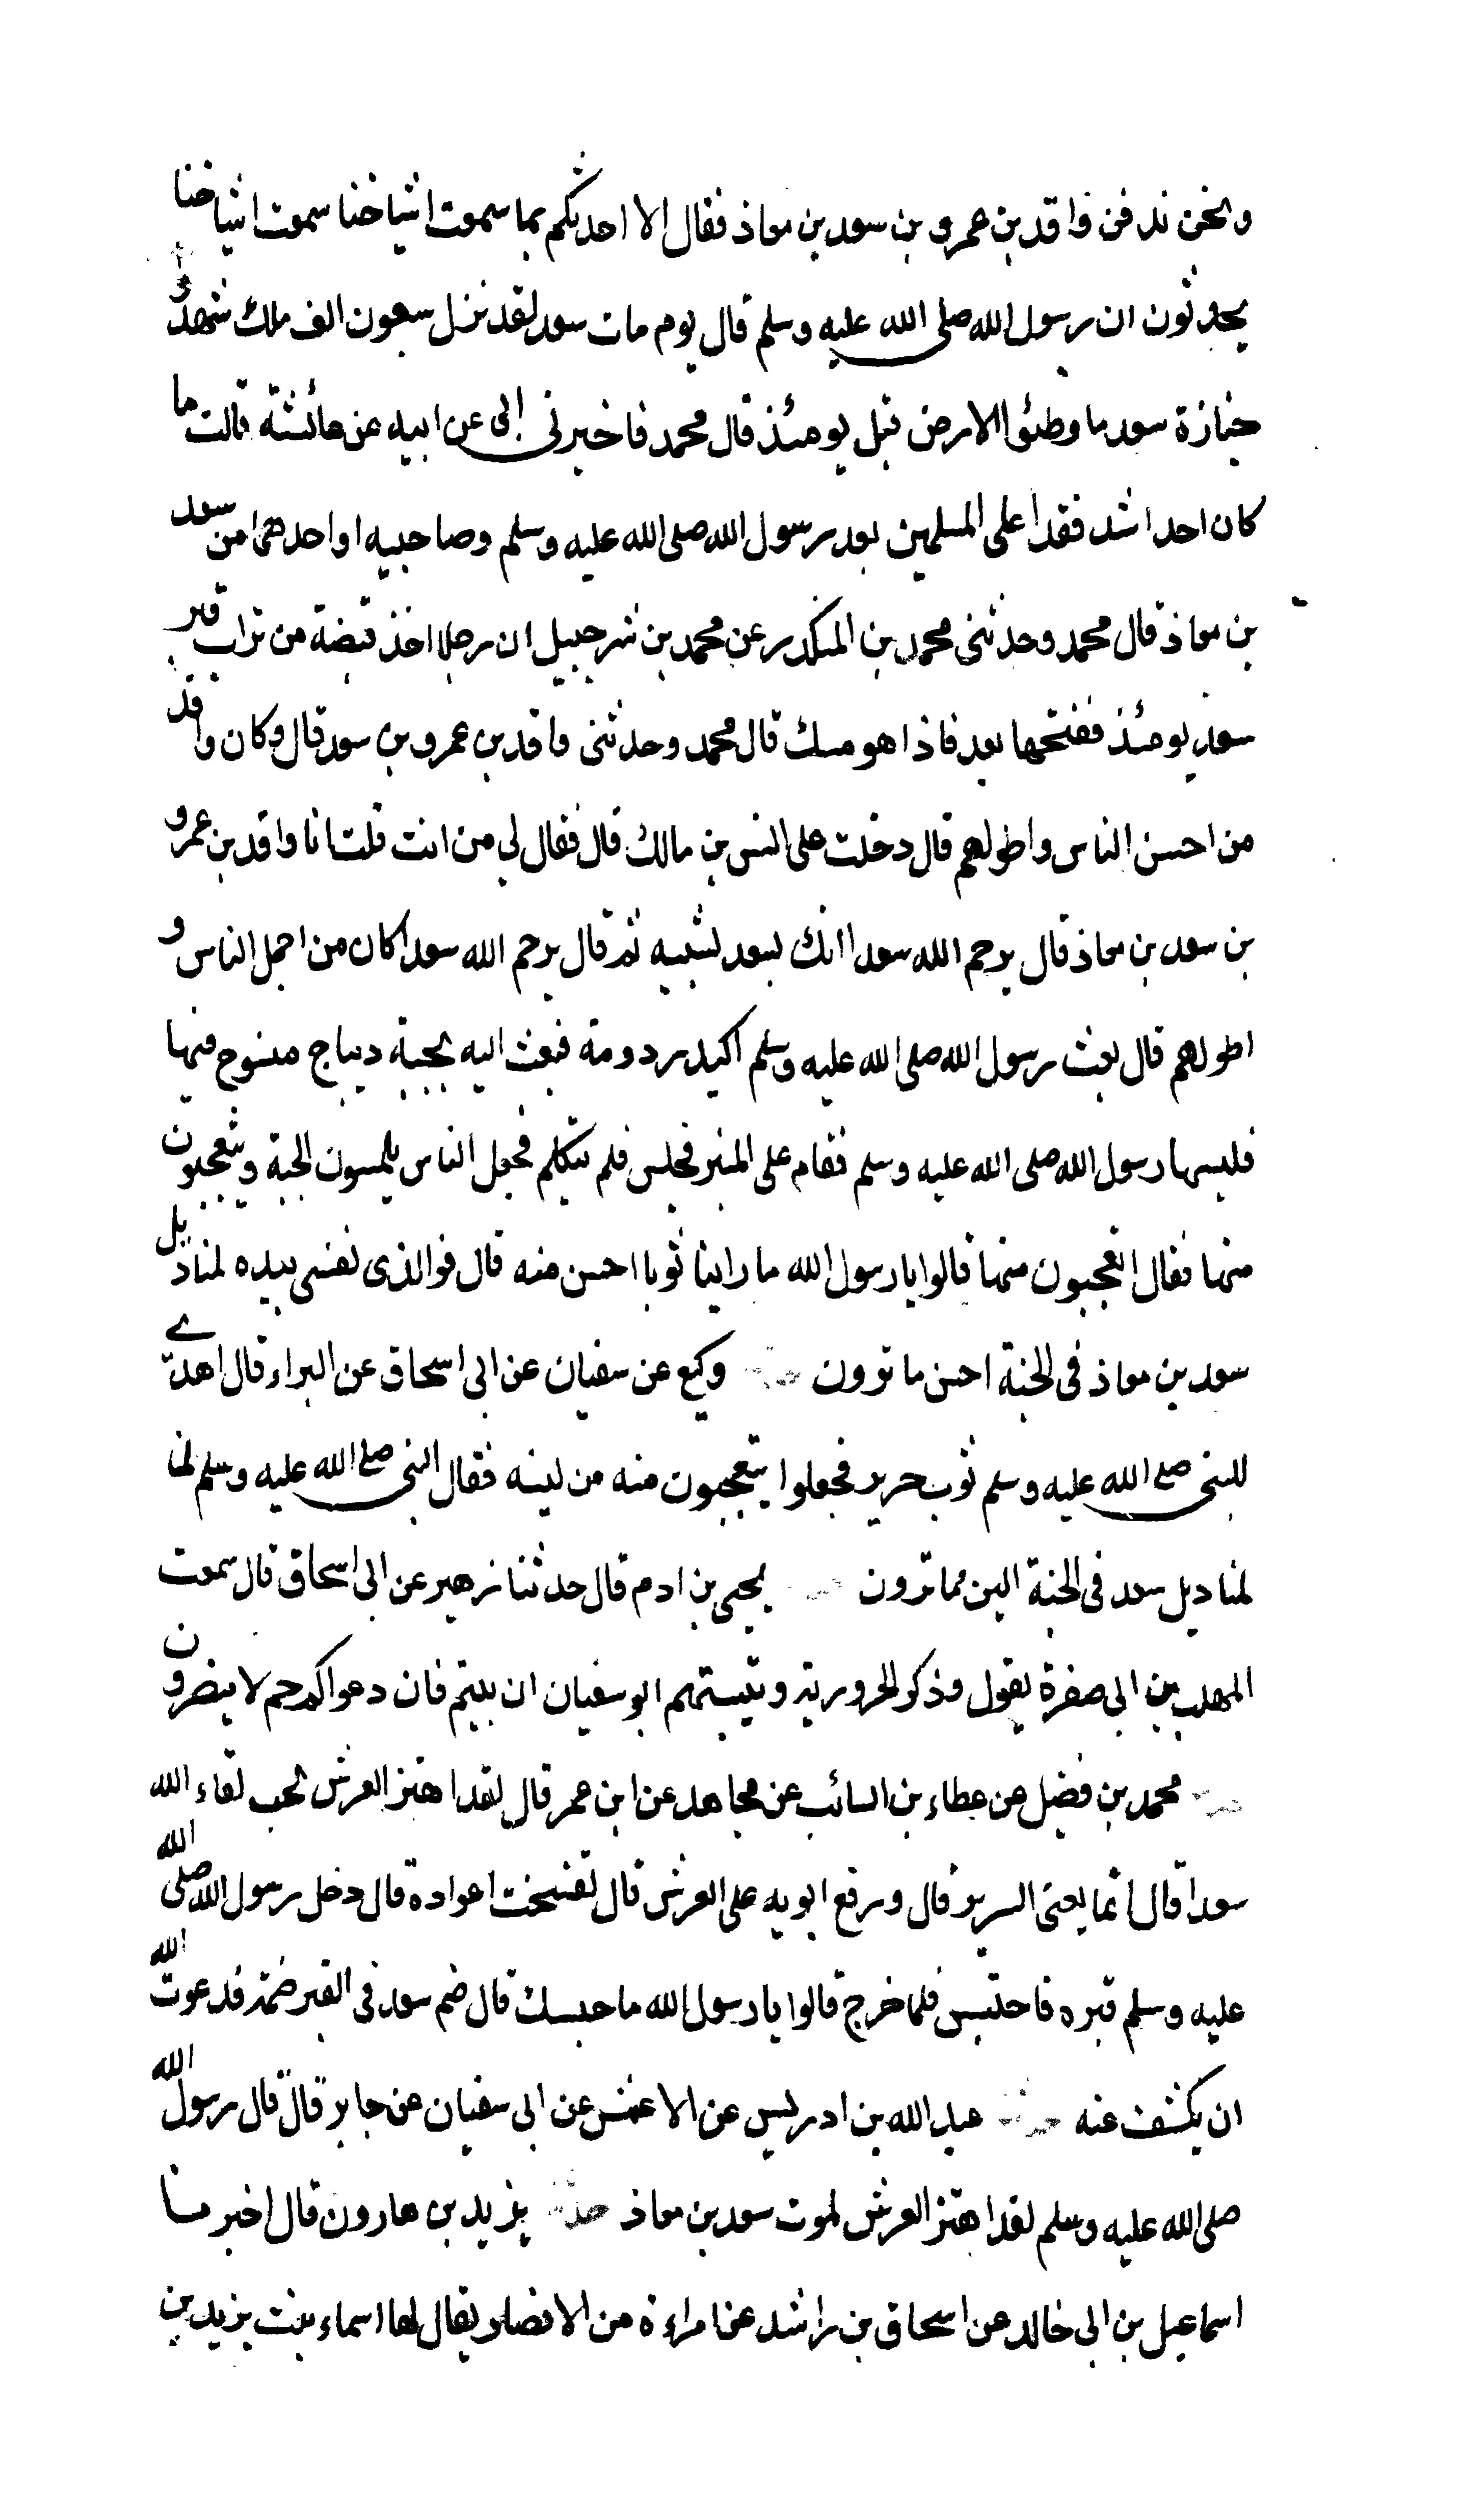 ونحن ندفن واقد بن عمرو بن سعد بن معاذ فقال الا احدثكم بما سمعت اشياخنا سمعت اشياخنا
يحدثون ان رسول الله صلى الله عليه وسلم قال يوم مات سعد لقد نزل سبعون الف ملك شهدوا
جنازة سعد ما وطئوا الارض قبل يومئذ قال محمد فاخبرنى ابى عن ابيه عن عائشة قالت ما
كان احد اشد فقدا على المسلمين بعد رسول الله صلى الله عليه وسلم وصاحبيه او احدهما من سعد
بن معاذ قال محمد وحدثنى محمد بن المنكدر عن محمد بن شرحبيل ان رجلا اخذ قبضة من تراب قبر
سعد يومئذ ففتحها بعد فاذا هو مسك قال محمد وحدثنى واقد بن عمرو بن سعد قال وكان واقد
من احسن الناس واطولهم قال دخلت على انس بن مالك قال فقال لي من انت قلت انا واقد بن عمرو
بن سعد بن معاذ قال يرحم الله سعدا انك بسعد لشبيه ثم قال يرحم الله سعدا كان من اجمل الناس و
اطولهم قال بعث رسول الله صلى الله عليه وسلم اكيدر دومة فبعث اليه بجبة ديباج منسوج فيها
فلبسها رسول الله صلى الله عليه وسلم فقام على المنبر فجلس فلم يتكلم فجعل الناس يلمسون الجبة ويتعجبون
منها فقال اتعجبون منها قالوا يا رسول الله ما راينا ثوبا احسن منه قال فوالذى نفسى بيده لمناديل
سعد بن معاذ فى الجنة احسن ما ترون وكيع عن سفيان عن ابى اسحاق عن البراء قال اهدى
للنبى صلى الله عليه وسلم ثوب حرير فجعلوا يتعجبون منه من لينه فقال النبى صلى الله عليه وسلم
لمناديل سعد فى الجنة الين مما ترون يحيى بن ادم قال حدثنا زهير عن ابى اسحاق قال سمعت
المهلب بن ابى صفرة يقول وذكر الحرورية وتبيتهم ابو سفيان ان بيتم فان دعواكم حم لا ينصرون
محمد بن فضيل عن عطاء بن السائب عن مجاهد عن ابن عمر قال لقد اهتز العرش لحب لقاء الله
سعدا قال انما يعنى السرير قال ورفع ابويه على العرش قال تفسخت اعواده قال دخل رسول الله صلى الله
عليه وسلم قبره فاحتبس فلما خرج قالوا يا رسول الله ما حبسك قال ضم سعد فى القبر ضمة فدعوت الله
ان يكشف عنه عبد الله بن ادريس عن الاعمش عن ابى سفيان عن جابر قال قال رسول الله
صلى الله عليه وسلم لقد اهتز العرش لموت سعد بن معاذ يزيد بن هارون قال اخبرنا
اسماعيل بن ابى خالد عن اسحاق بن راشد عن امراءة من الانصار يقال لها اسماء بنت يزيد بن